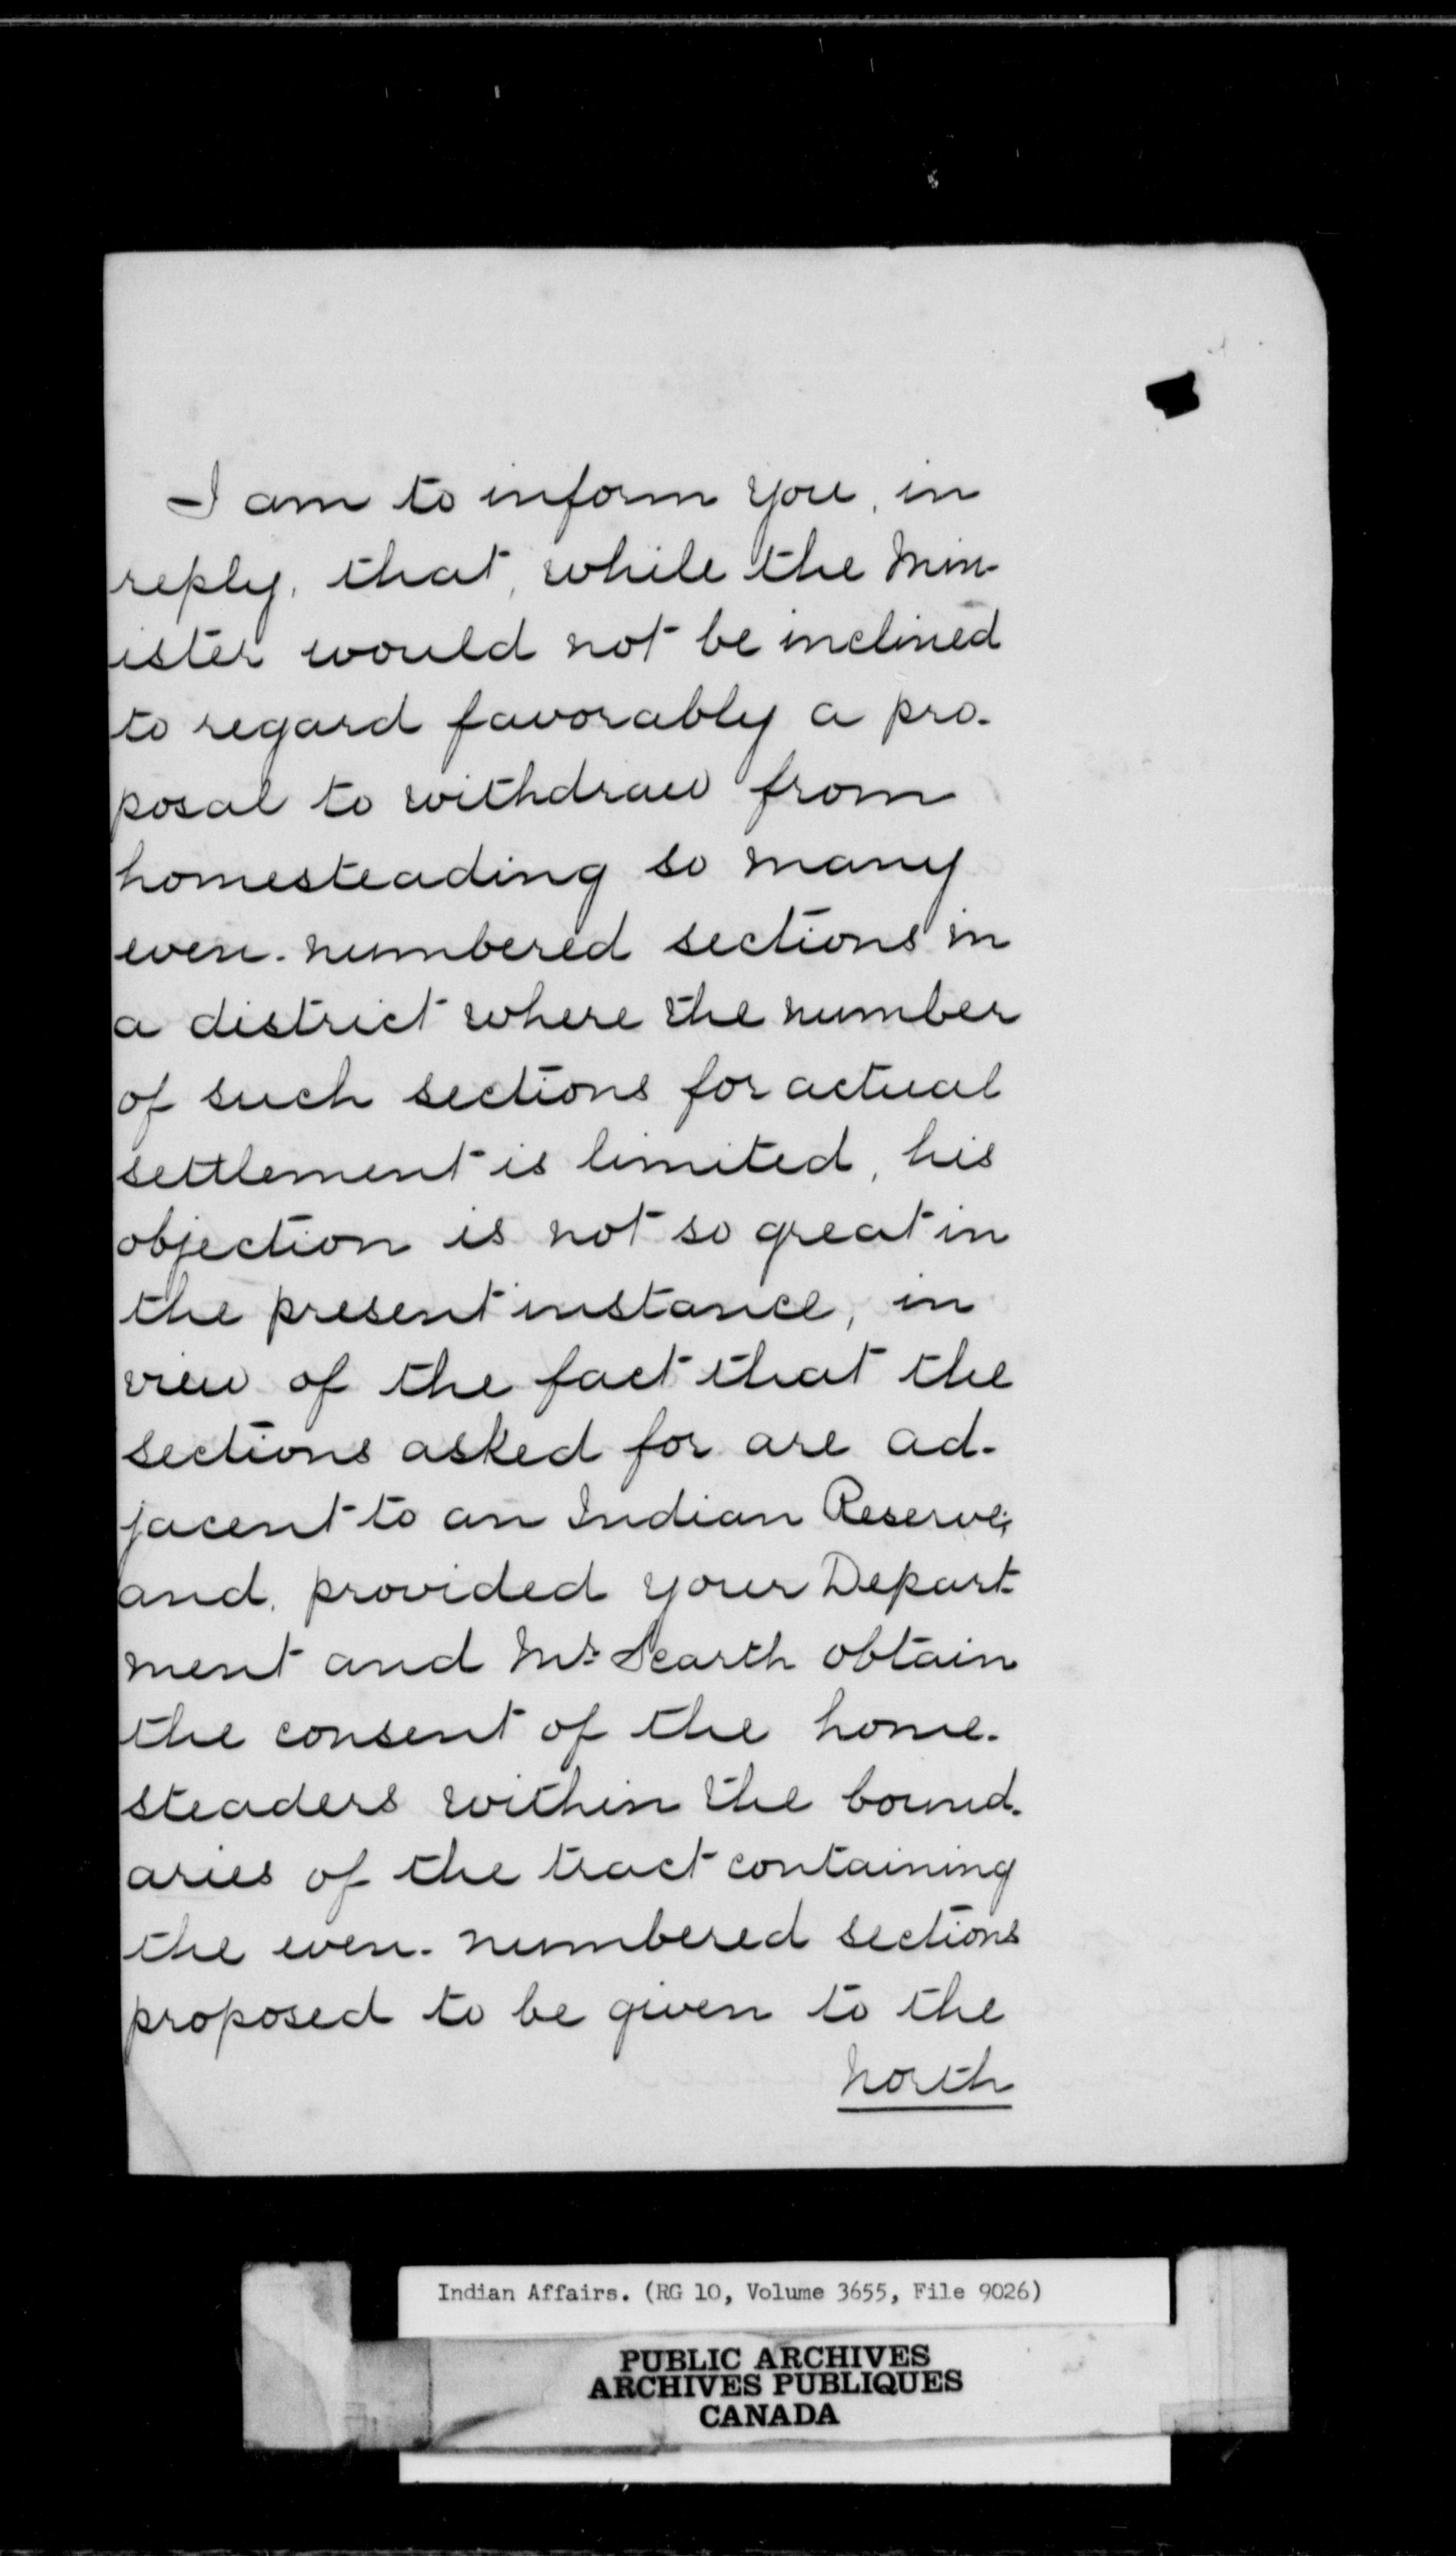 I am to inform you, in
reply, that, while the Min-
ister would not be inclined
to regard favorably a pro-
posal to withdraw from
homesteading so many
even-numbered sections in
a district where the number
of such sections for actual
settlement is limited, his
objection is not so great in
the present instance, in
view of the fact that the
sections asked for are ad-
jacent to an Indian Reserve;
and, provided your Depart-
ment and Mr. Scarth obtain
the consent of the home-
steaders within the bound-
aries of the tract containing
the even-numbered sections
proposed to be given to the
North
Indian Affairs. (RG 10, Volume 3655, File 9026)
PUBLIC ARCHIVES
ARCHIVES PUBLIQUES
CANADA